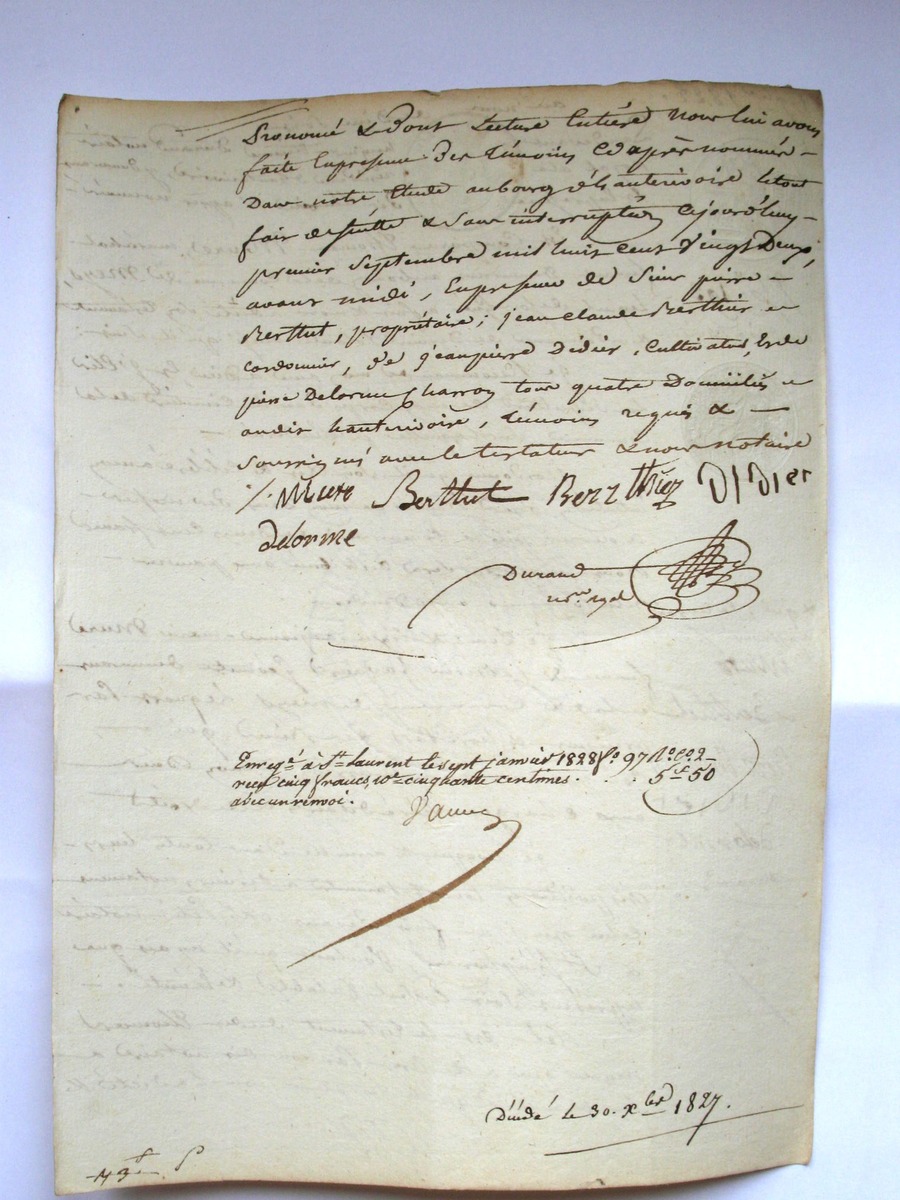 Prononcé & dont Lecture Entière Nous lui avons
faite En presence Des témoins Cy après nommés –
Dans notre Etude au bourg d'hauterivoire le tout
fait de suitte & Sans interruption Cejourd'huy –
premier Septembre mil huit Cent Vingt Deux,
avant midi, En presence de Sieur pierre –
Berthut, propriétaire; jean Claude Berthier
Cordonnier, De jean pierre Didier, Cultivateur, Et de
pierre Delorme Charron tous quatre Domiciliés
audit hauterivoire, témoins requis & –
Soussignés avec le testateur & nous notaire
Mure Berthut Berthier DIDier
delorme
Durand
nore. ryal
Enregé. à St. Laurent le sept janvier 1828 fo. 97 No. Co. 2
reçu cinq francs, 10e. cinquante centimes. 5f. 50
avec un renvoi.
Décédé le 30. Xbre 1827.